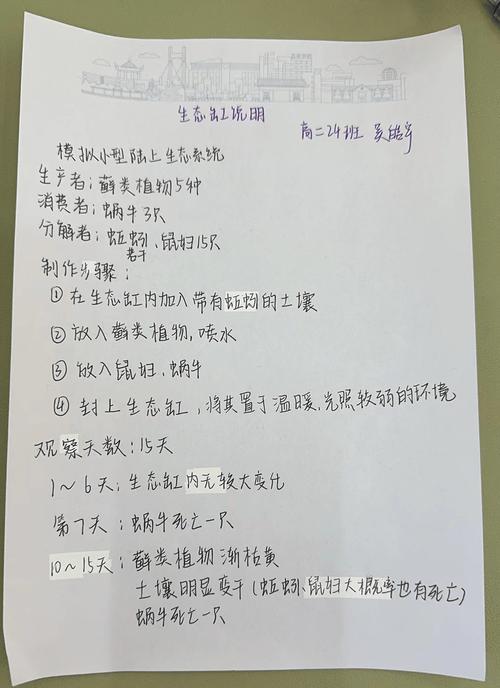 生态缸说明
高二24班 吴皓宇
模拟小型陆上生态系统
生产者：藓类植物5种
消费者：蜗牛3只
分解者：蚯蚓若干、鼠妇15只
制作步骤：
① 在生态缸内加入带有蚯蚓的土壤
② 放入藓类植物，喷水
③ 放入鼠妇、蜗牛
④ 封上生态缸，将其置于温暖、光照较弱的环境
观察天数：15天
1～6天：生态缸内无较大变化
第7天：蜗牛死亡一只
10～15天：藓类植物渐枯黄
土壤明显变干（蚯蚓、鼠妇大概率也有死亡）
蜗牛死亡一只